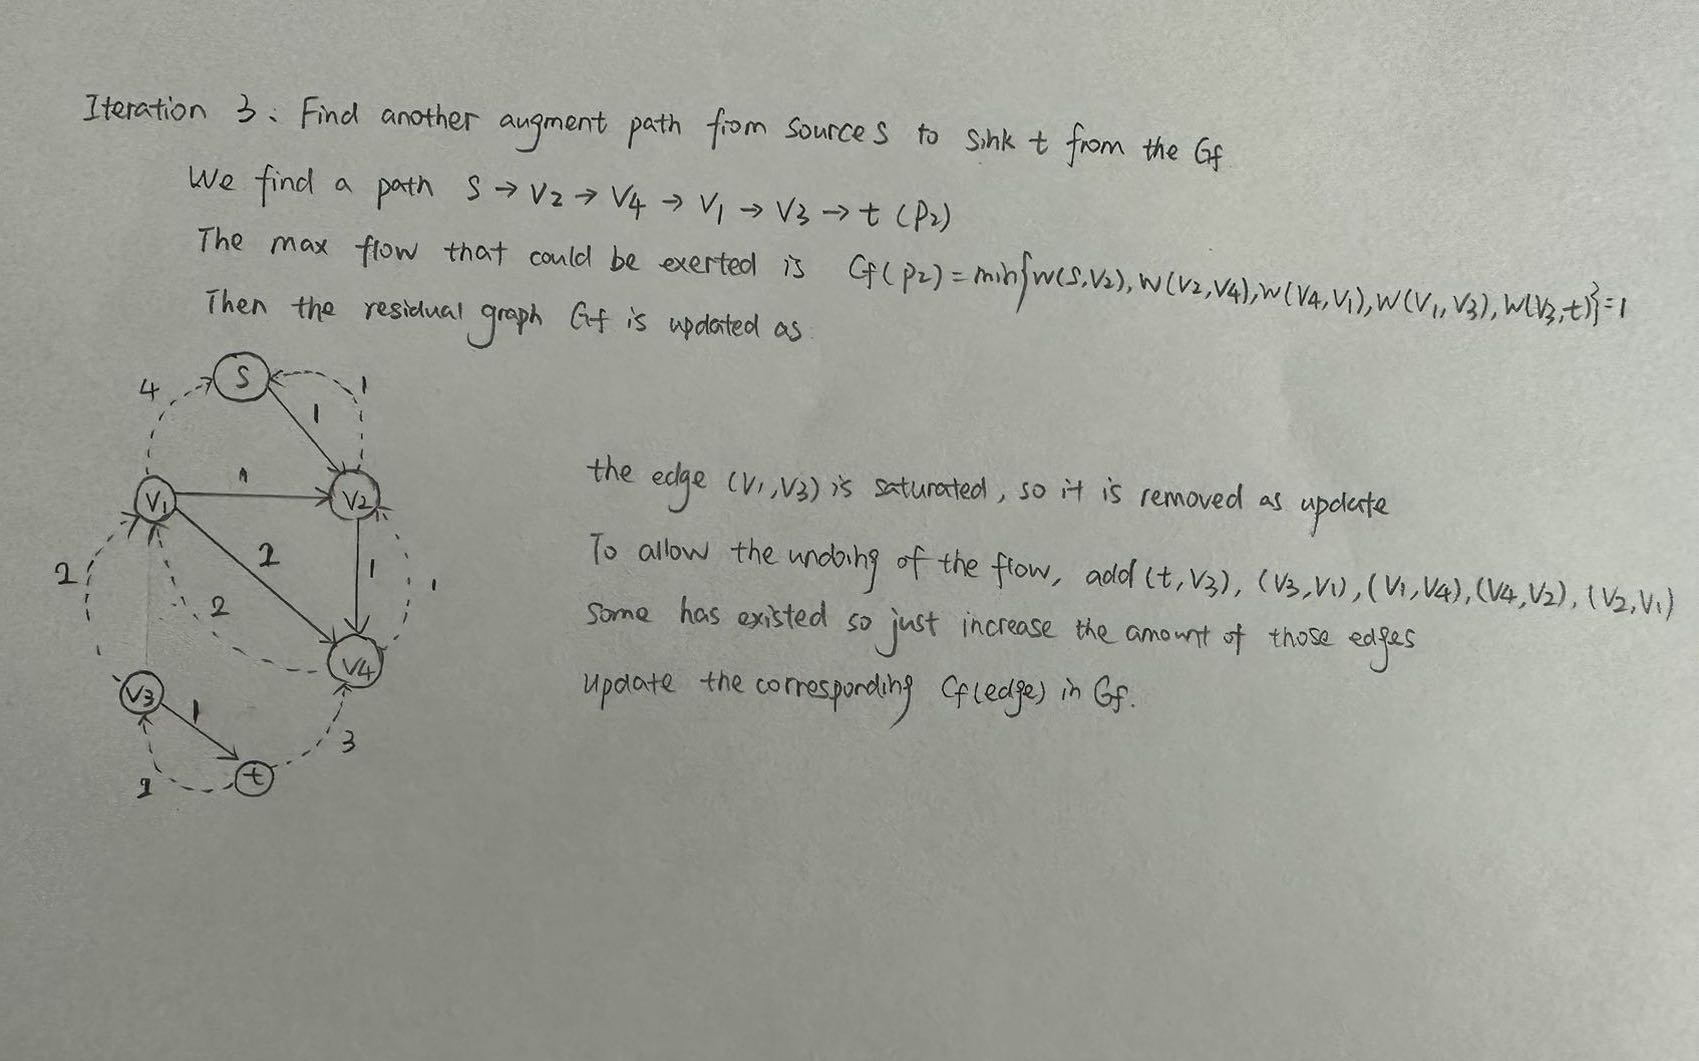 Iteration 3: Find another augment path from source s to sink t from the Gf
We find a path S → V2 → V4 → V1 → V3 → t (P2)
The max flow that could be exerted is Cf(P2) = min{w(S,V2), W(V2,V4), W(V4,V1), W(V1,V3), W(V3,t)} = 1
Then the residual graph Gf is updated as
4 S 1
1
V1 V2
the edge (V1,V3) is saturated, so it is removed as update
2 2 1 1
To allow the undoing of the flow, add (t,V3), (V3,V1), (V1,V4), (V4,V2), (V2,V1)
2
some has existed so just increase the amount of those edges
V3 V4
update the corresponding Cf(edge) in Gf.
1
3
t